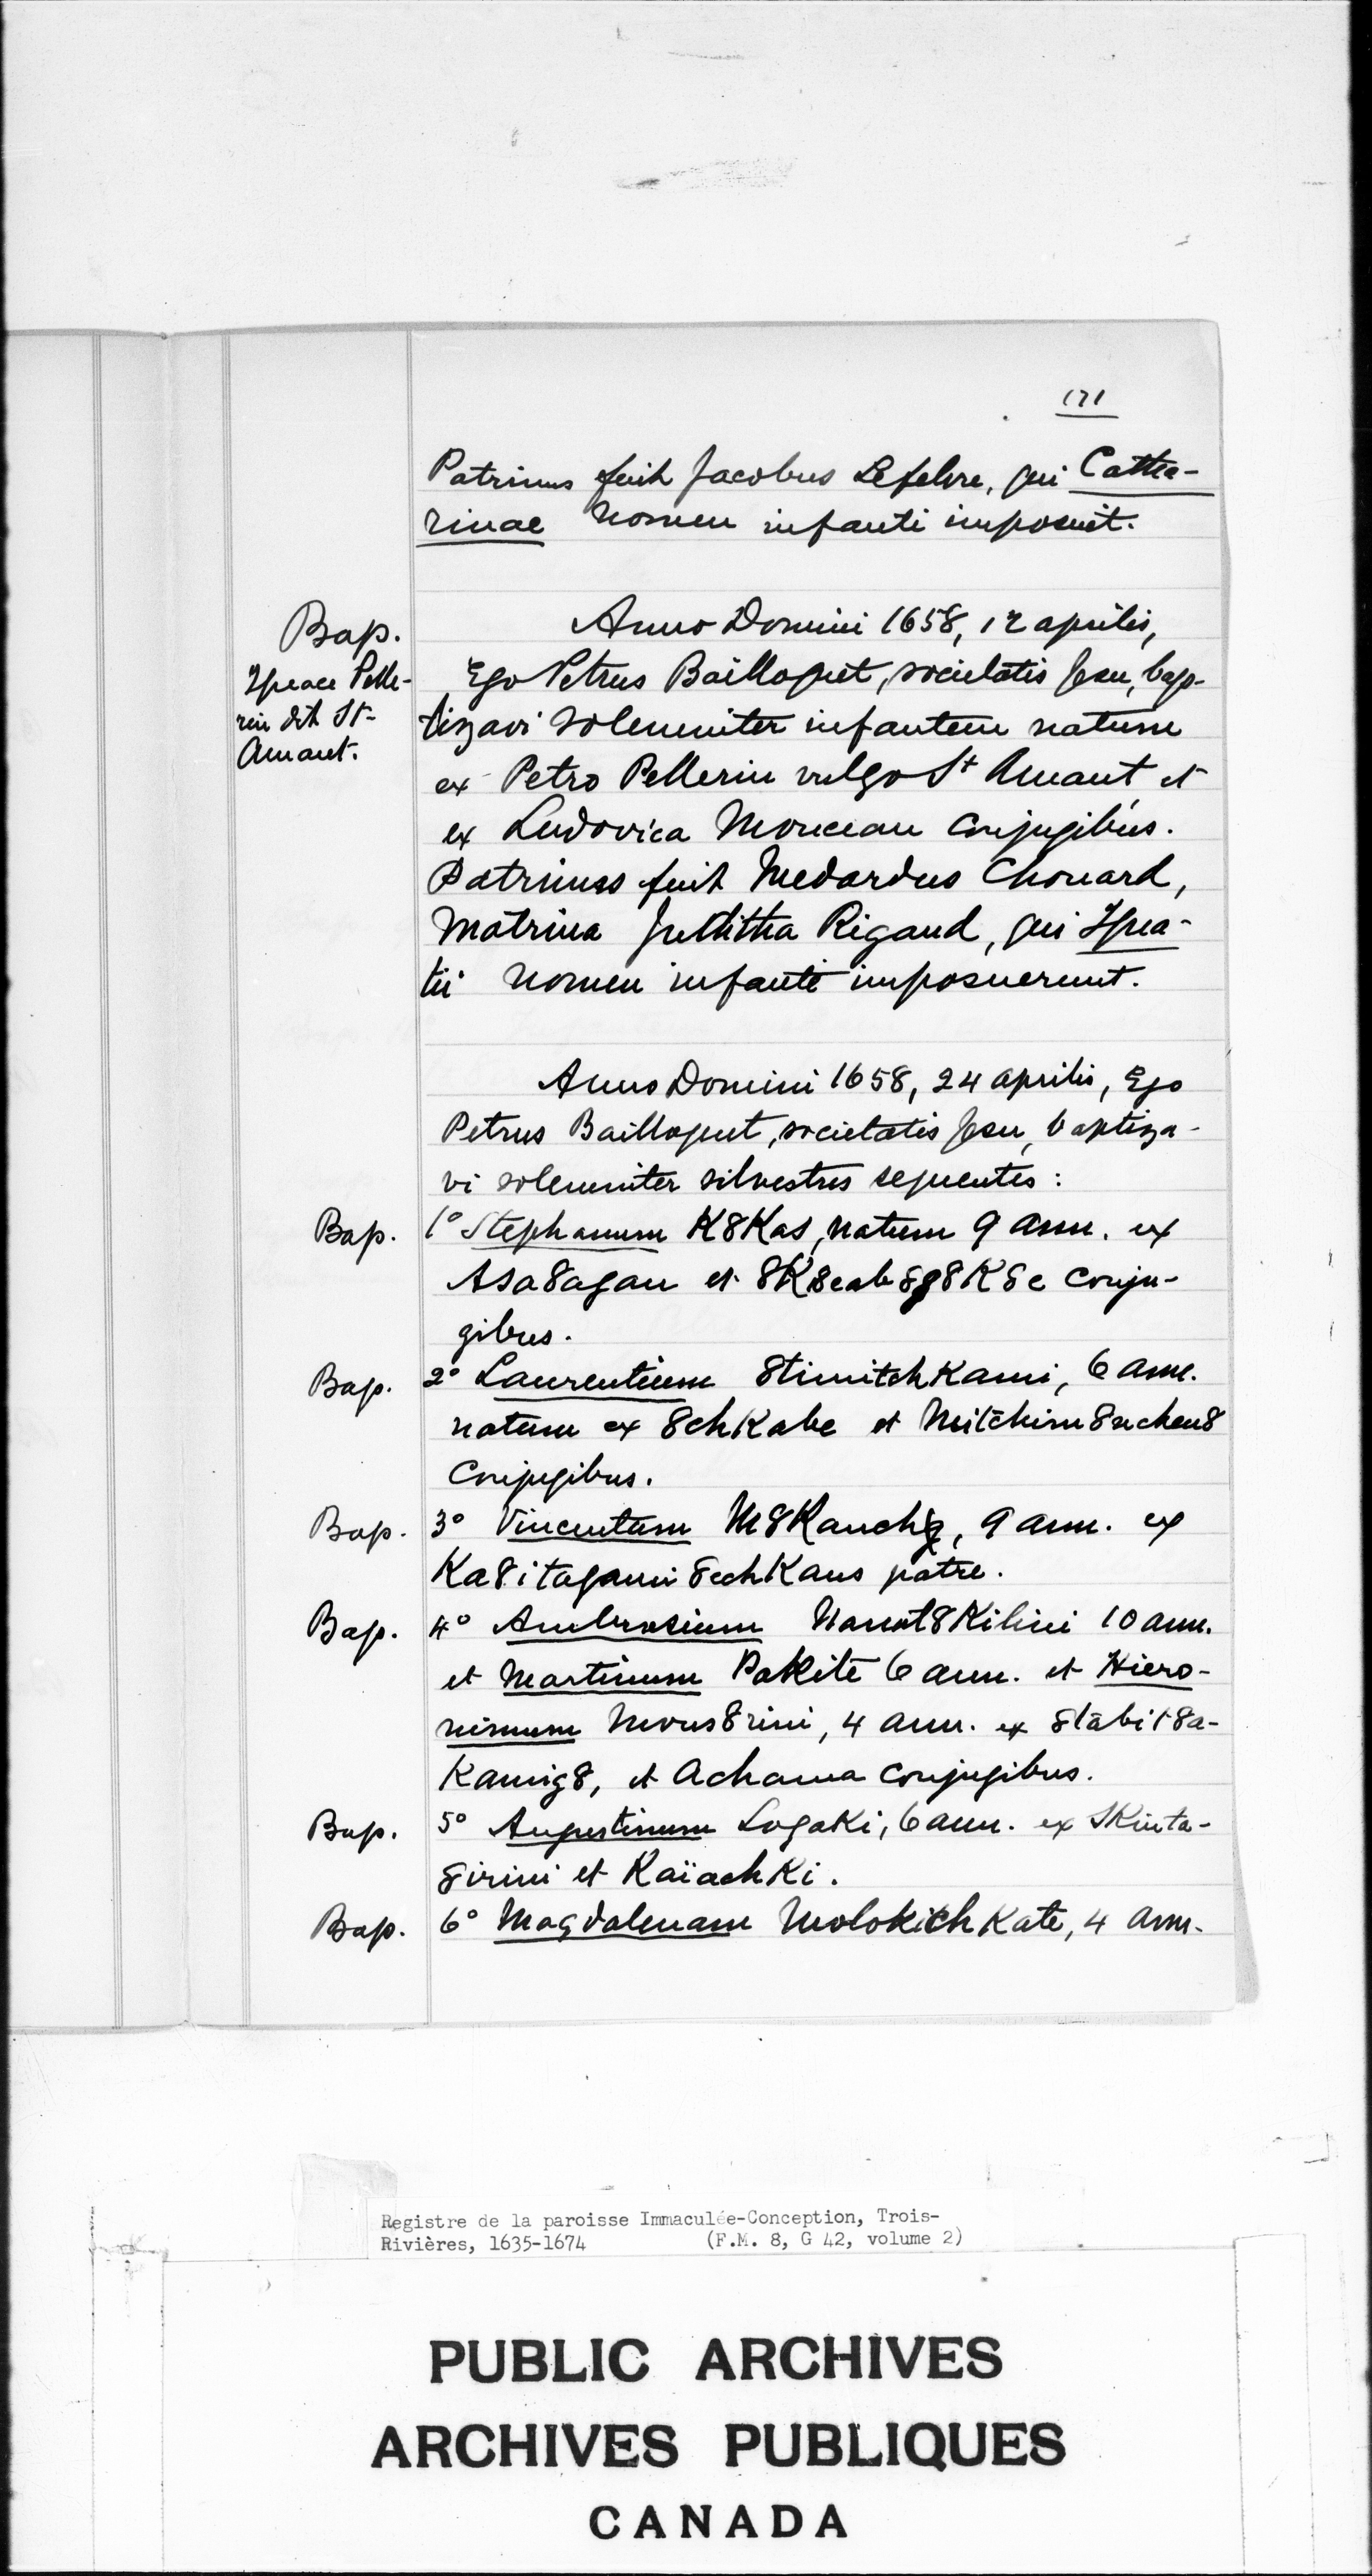 171
Patrinus fuit Jacobus Lefebvre, qui Catha-
rinae nomen infanti imposuit.
Bap.
Ignace Pelle-
rin dit St-
Amant.
Anno Domini 1658, 12 aprilis,
Ego Petrus Bailloquet, societatis Jesu, bap-
tizavi solemniter infantem natum
ex Petro Pellerin vulgo St Amant et
ex Ludovica Mouceau conjugibus.
Patrinus fuit Medardus Chouard,
Matrina Juditha Rigaud, qui Igna-
tii nomen infanti imposuerunt.
Anno Domini 1658, 24 aprilis, Ego
Petrus Bailloquet, societatis Jesu, baptiza-
vi solemniter silvestres sequentes:
Bap. 1° Stephanum K8Kas, natum 9 ann. ex
Asa8agan et conju-
gibus.
Bap. 2° Laurentium 8timitchKami, 6 ann.
natum ex 8chKabe et
conjugibus.
Bap. 3° Vincentum 9 ann. ex
Ka8itagami8echKaus patre.
Bap. 4° Ambrosium 10 ann.
et Martinum Pakite 6 ann. et Hiero-
nimum Mous8rini, 4 ann. ex 8tabit8a-
Kamig8, et Achama conjugibus.
Bap. 5° Augustinum Logaki, 6 ann. ex SKinta-
8irini et KaïachKi.
Bap. 6° Magdalenam MolokichKate, 4 ann.
Registre de la paroisse Immaculée-Conception, Trois-
Rivières, 1635-1674 (F.M. 8, G 42, volume 2)
PUBLIC ARCHIVES
ARCHIVES PUBLIQUES
CANADA